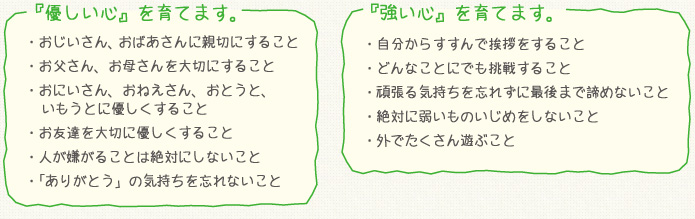 『優しい心』を育てます。
・おじいさん、おばあさんに親切にすること
・お父さん、お母さんを大切にすること
・おにいさん、おねえさん、おとうと、
いもうとに優しくすること
・お友達を大切に優しくすること
・人が嫌がることは絶対にしないこと
・「ありがとう」の気持ちを忘れないこと
『強い心』を育てます。
・自分からすすんで挨拶をすること
・どんなことにでも挑戦すること
・頑張る気持ちを忘れずに最後まで諦めないこと
・絶対に弱いものいじめをしないこと
・外でたくさん遊ぶこと